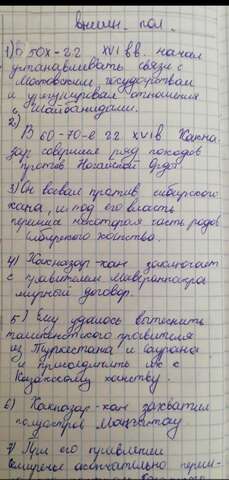 внешн. пол.
1) В 50х-гг XVI вв. начал
устанавливать связи с
Московским государством
и урегулировал отношения
с Шайбанидами.
2)
В 60-70-е гг XVIв Хакна-
зар совершил ряд походов
против Ногайской Орды
3) Он воевал против сибирского
хана, и под его власть
перешла некоторая часть родов
Сибирского ханства.
4) Хакназар-хан заключает
с правителем Мавераннахра
мирный договор.
5) Ему удалось вытеснить
ташкентского правителя
из Туркестана и Саурана
и присоединить их к
Казахскому ханству.
6) Хакназар-хан захватил
полуостров Мангытау.
7) При его правлении
Семиречье окончательно переш-